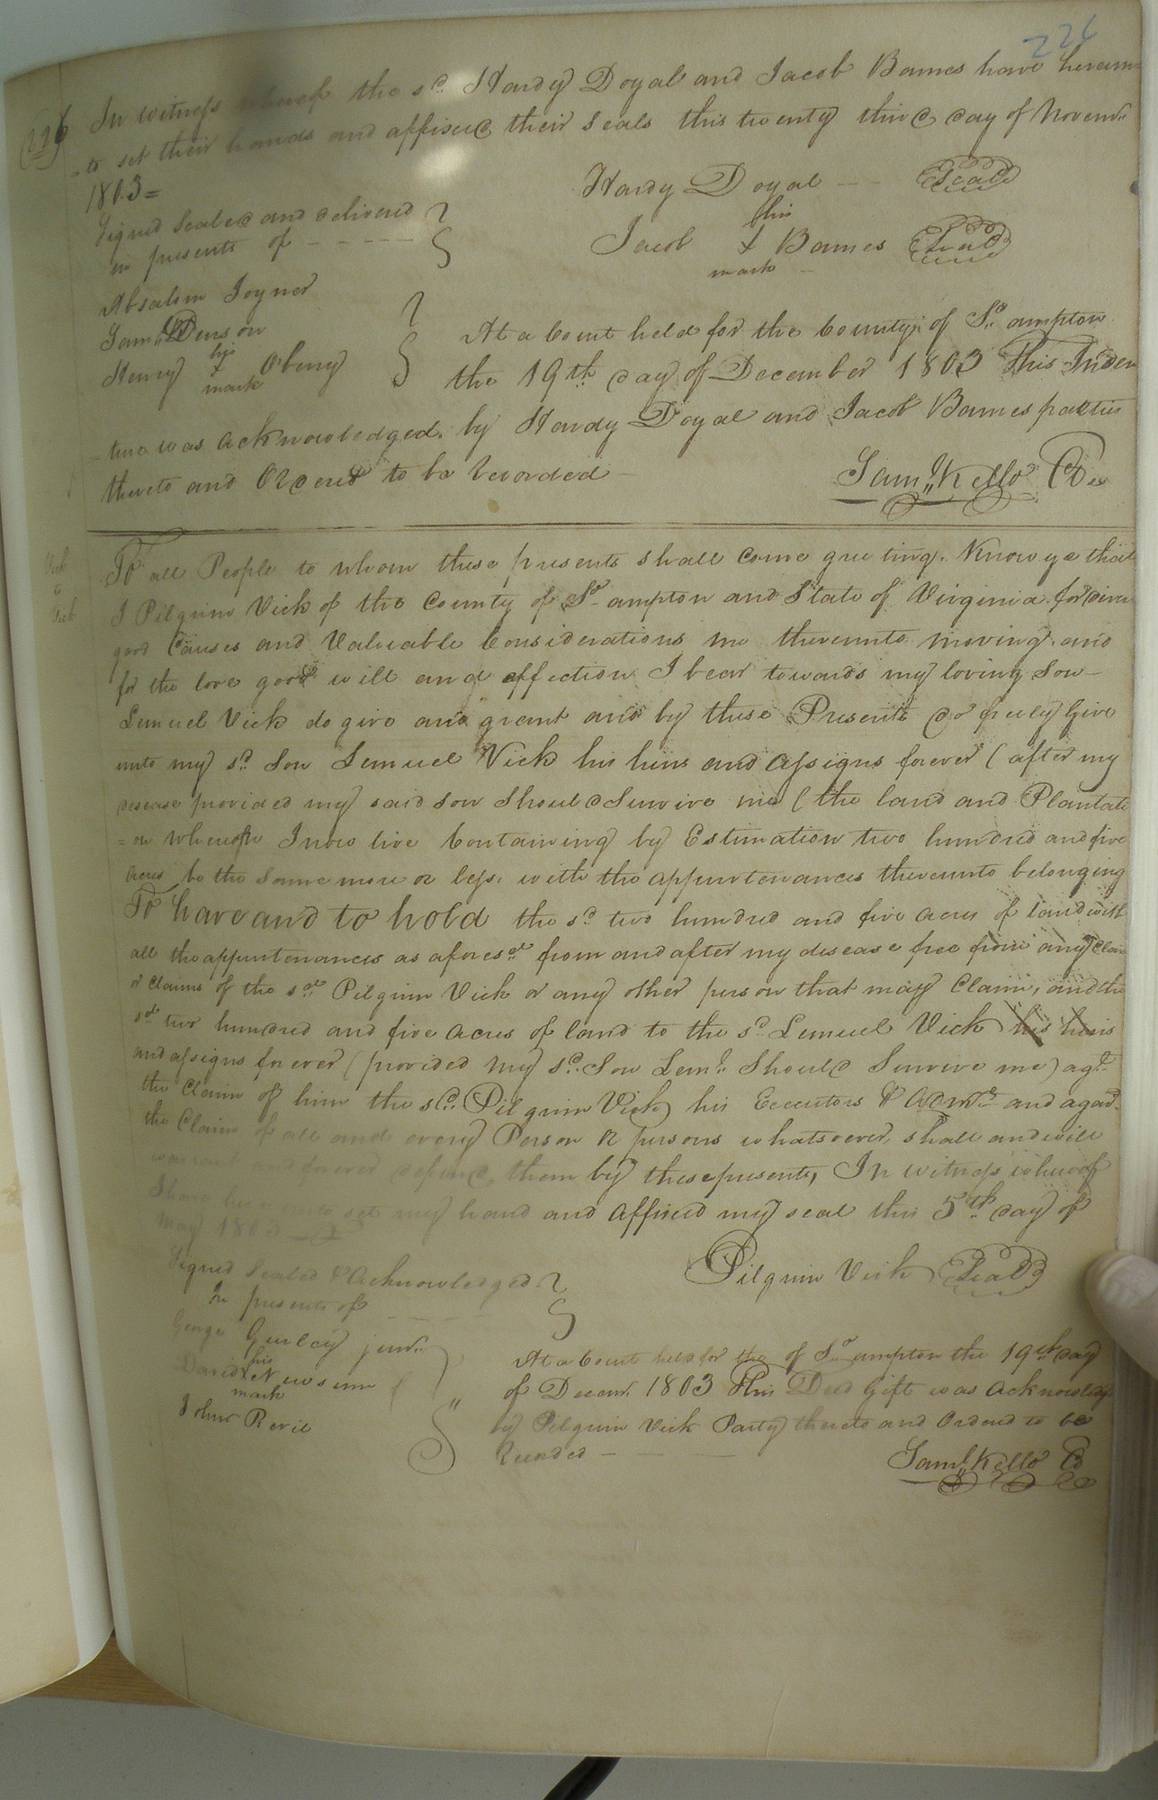 226
226
In witness whereof the sd. Hardy Doyal and Jacob Barnes have hereun
= to set their hands and affixed their seals this twenty third day of Novemr.
1803 =
Signed Sealed and delivered
in presents of
Hardy Doyal Seal
Jacob his X mark Barnes Seal
Absalom Joyner
Saml. Denson
Henry his X mark Obeny
At a Court held for the County of So. ampton
the 19th day of December 1803 This Inden
- ture was acknowledged by Hardy Doyal and Jacob Barnes parties
thereto and Ordered to be recorded
Saml. Kello
Vick
to
Vick
To all People to whom these presents shall come greeting. Know ye that
I Pilgrim Vick of the County of So. ampton and State of Virginia for divers
good Causes and Valuable Considerations me thereunto moving and
for the love good will and affection I bear towards my loving Son
Lemuel Vick do give and grant and by these Presents do freely Give
unto my sd. Son Lemuel Vick his hiirs and assigns forever ( after my
desease provided my said son Should Survive me ( the land and Plantati
= on whereon I now live Containing by Estimation two hundred and five
acres be the same more or less. with the appurtenances thereunto belonging
To have and to hold the sd. two hundred and five acres of land with
all the appurtenances as aforesd. from and after my desease free from any Claim
or Claims of the sd. Pilgrim Vick or any other person that may Claim, and the
sd. two hundred and five acres of land to the sd. Lemuel Vick his hiirs
and assigns forever ( provided my sd. Son Leml. Should Survive me) agt.
the Claim of him the sd. Pilgrim Vick his Executors & Admrs. and against
the Claim of all and every Person or persons whatsoever, shall and will
warrant and forever defend, them by these presents, In witness whereof
I have hereunto set my hand and affixed my seal this 5th day of
May 1803
Signed Sealed & Acknowledged
In presents of
Pilgrim Vick Seal
George Gurley junr.
David his X mark Newsum
John Revil
At a Court held for the of So. ampton the 19th day
of Decemr. 1803 This Deed Gift was acknowledgd
by Pilgrim Vick Party thereto and Ordered to be
Recorded
Saml. Kello